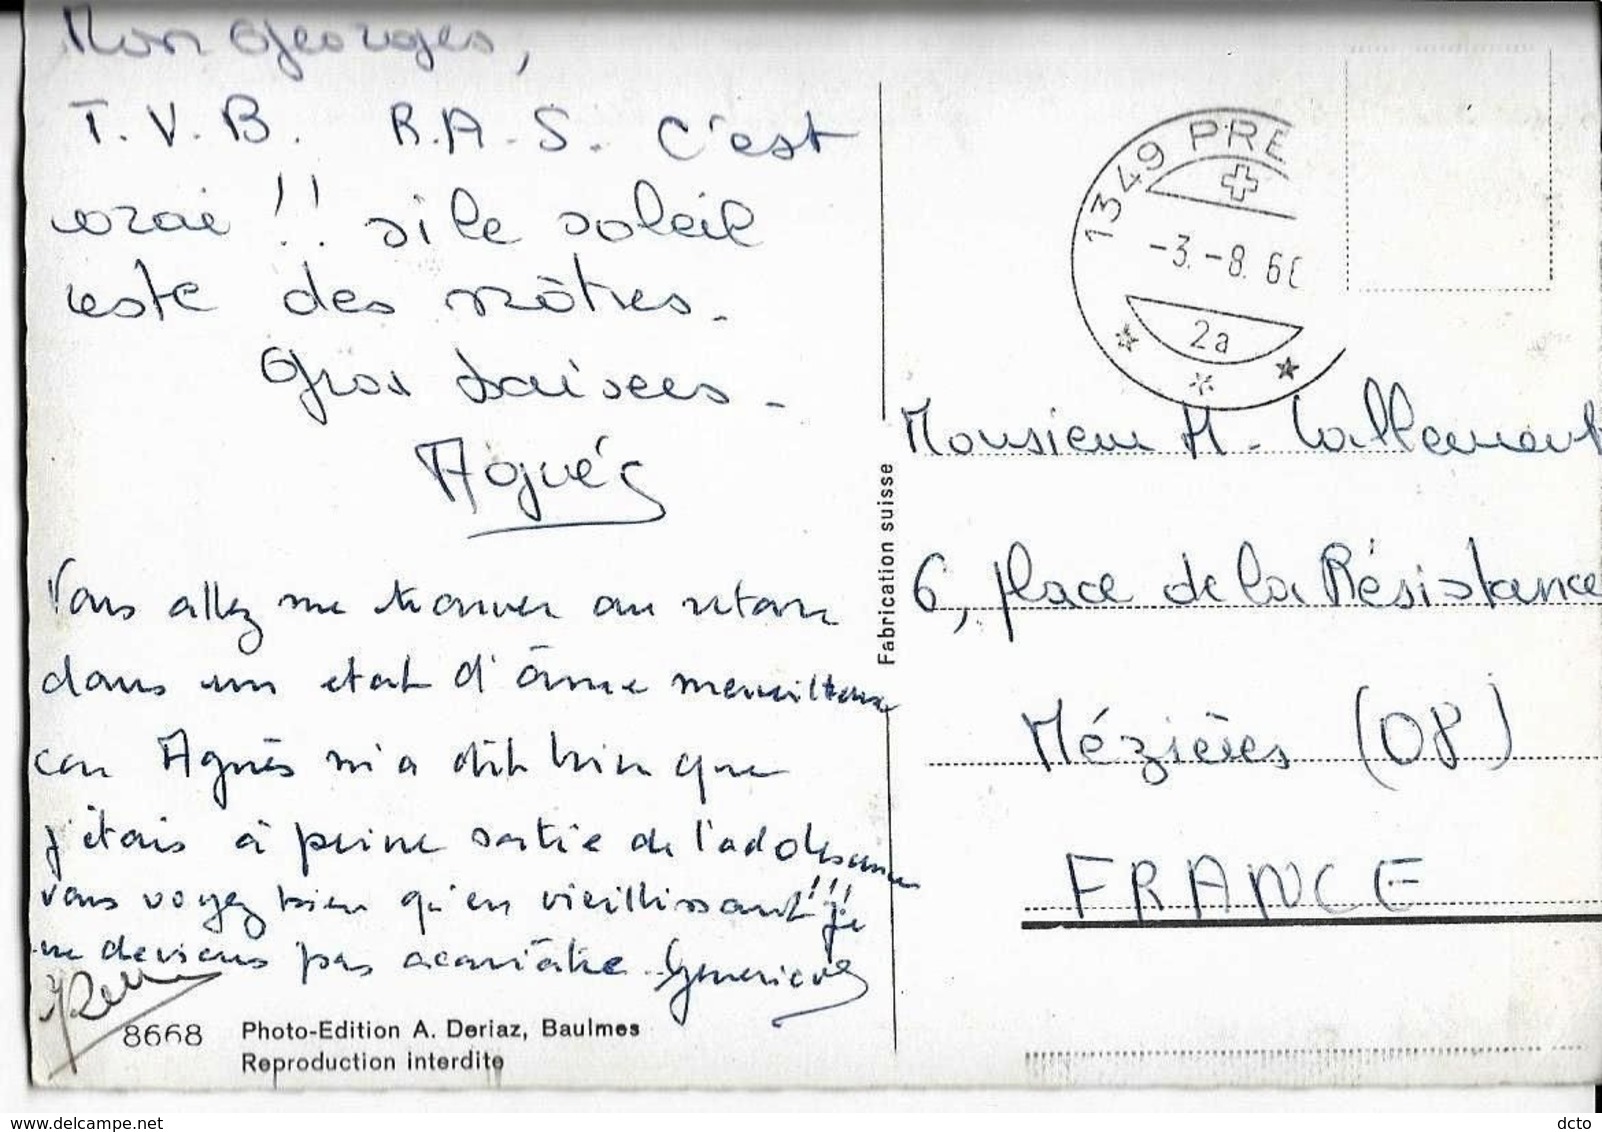 Mon Georges,
T.V.B. R.A.S. C'est
vrai !! si le soleil
reste des nôtres.
Gros baisers.
Agnés
Vous allez me trouver au retour
dans un état d'âme merveilleux
car Agnès m'a dit bien que
j'étais à peine sortie de l'adolescence
vous voyez bien qu'en vieillissant !!! je
ne deviens pas acariâtre. Geneviève
8668 Photo-Edition A. Deriaz, Baulmes
Reproduction interdite
Fabrication suisse
1349 PRE
-3.-8.6
2a
Monsieur M. Lallemant
6, place de la Résistance
Mézières (08)
FRANCE
delcampe.net
dcto